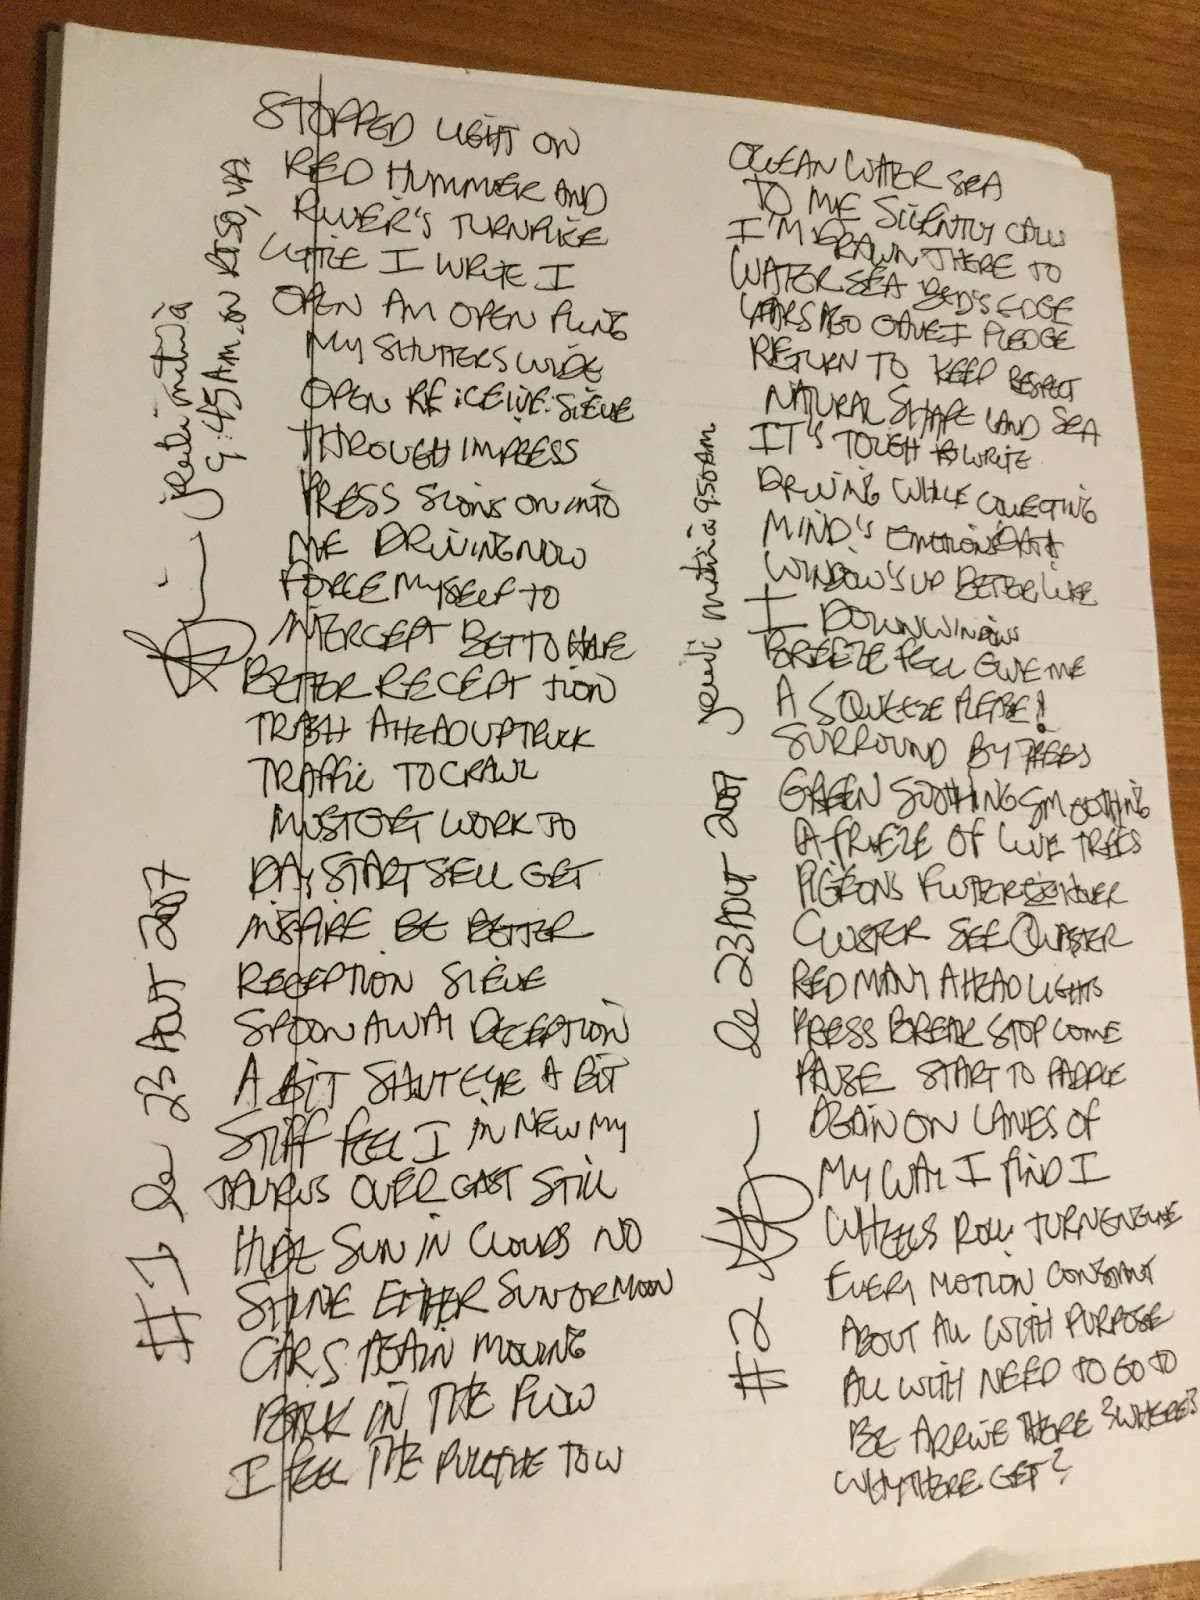 #1 Le 23 AOUT 2007
jeudi matin à
9:45 AM. on RT 50, VA.
STOPPED LIGHT ON
RED HUMMER AND
RIVER'S TURNPIKE
LITTLE I WRITE I
OPEN AM OPEN FLING
MY SHUTTERS WIDE
OPEN RE:CEIVE:SIEVE
THROUGH IMPRESS
PRESS SIGNS ON INTO
ME DRIVING NOW
FORCE MYSELF TO
INTERCEPT BET TO HAVE
BETTER RECEPT TION
TRASH AHEAD UP TRUCK
TRAFFIC TO CRAWL
MUST GET WORK TO
DAY START SELL GET
INSPIRE BE BETTER
RECEPTION SIEVE
SPOON AWAY DECEPTION
A BIT SHUT EYE A BIT
STIFF FEEL I IN NEW MY
TAURUS OVER CAST STILL
HIDE SUN IN CLOUDS NO
SHINE EITHER SUN OR MOON
CARS AGAIN MOVING
BACK IN THE FLOW
I FEEL THE PULL THE TOW
#2 Le 23 AOUT 2007 jeudi matin à 950 AM
OCEAN WATER SEA
TO ME SILENTLY CALLS
I'M DRAWN THERE TO
WATER SEA BED'S EDGE
YEARS AGO GAVE I PLEDGE
RETURN TO KEEP RESPECT
NATURAL SHAPE LAND SEA
IT'S TOUGH TO WRITE
DRIVING WHILE COLLECTING
MIND'S EMOTIONS DATA
WINDOW'S UP BETTER LIKE
I DOWN WINDOWS
BREEZE FEEL GIVE ME
A SQUEEZE PLEASE!
SURROUND BY TREES
GREEN SOOTHING SMOOTHING
A FRIEZE OF LIVE TREES
PIGEONS FLUTTER HOVER
CLUSTER SEE QUASTER
RED MANY AHEAD LIGHTS
PRESS BREAK STOP COME
PAUSE START TO PADDLE
AGAIN ON LANES OF
MY WAY I FIND I
WHEELS ROLL TURN ENGINE
EVERY MOTION CONSTANT
ABOUT ALL WITH PURPOSE
ALL WITH NEED TO GO TO
BE ARRIVE THERE ? WHERE?
WHY THERE GET?